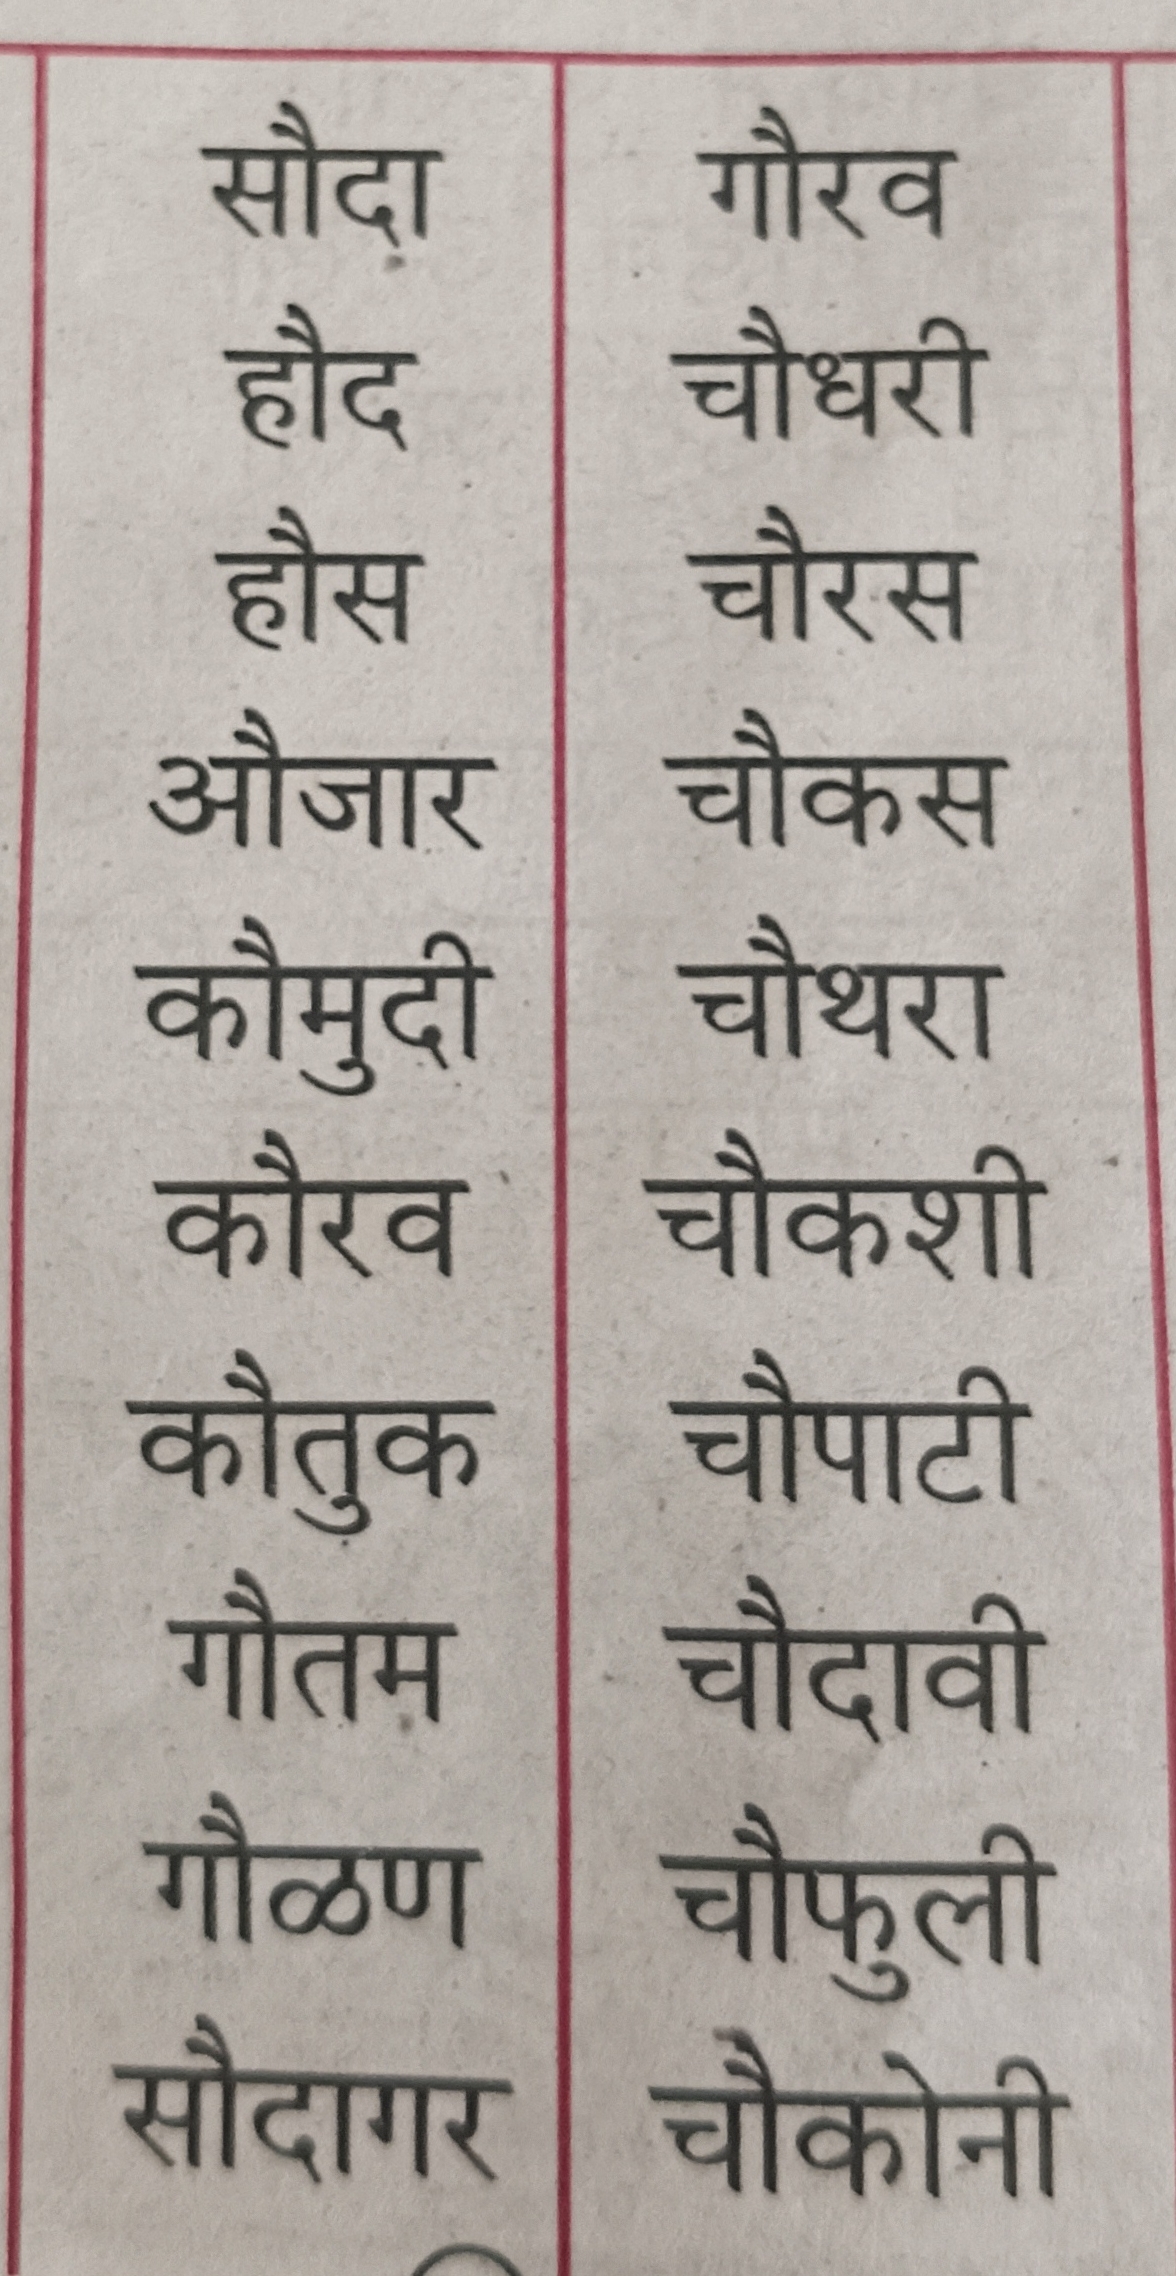 सौदा गौरव
हौद चौधरी
हौस चौरस
औजार चौकस
कौमुदी चौथरा
कौरव चौकशी
कौतुक चौपाटी
गौतम चौदावी
गौळण चौफुली
सौदागर चौकोनी